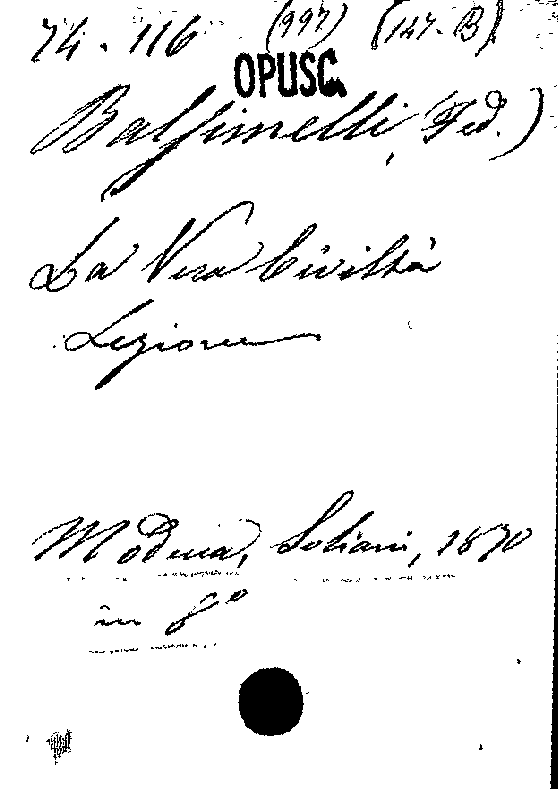 74. 116 (997) (147. B)
OPUSC.
Balsimelli, (Fed.)
La Vera Civiltà
Lezione
Modena, Soliani, 1870
in 8º